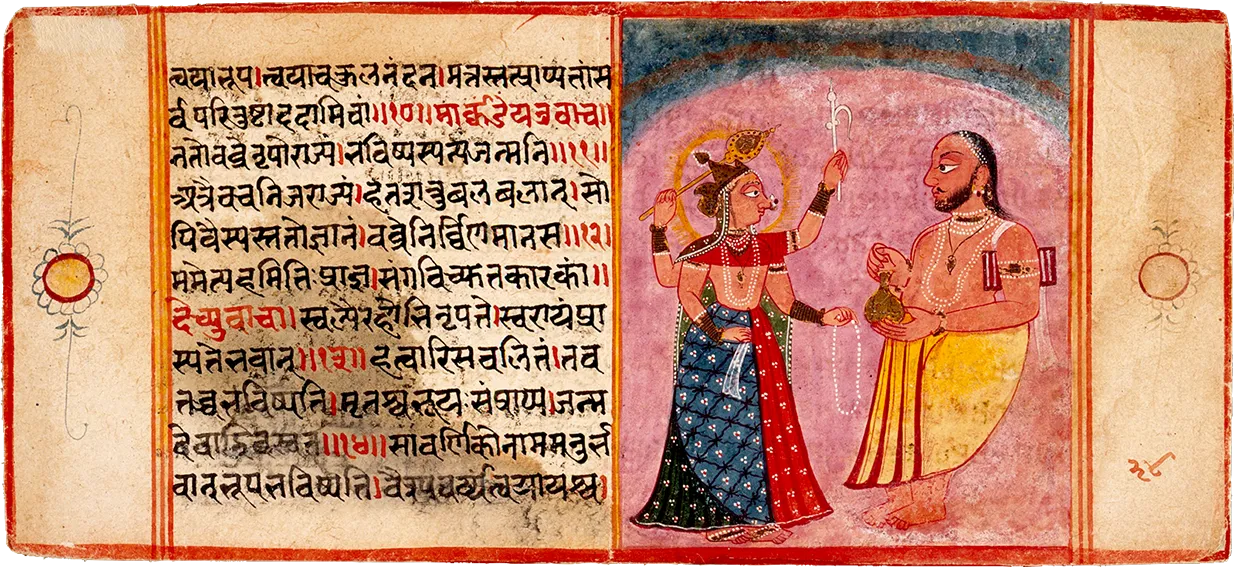 त्वयाभूप।त्वयाचकुलनंदन।मत्तस्तत्प्राप्यतांस
र्वपरितुष्टाददामिवां॥१०॥मार्कंडेयउवाच॥
ततोवव्रेनृपोराज्यं।भविष्यस्यत्यजन्मनि॥११॥
अत्रैवचनिजराज्यं।हतशत्रुबलबलात्।सो
पिवैस्यस्ततोज्ञानं।वव्रेनिर्विणमानस॥१२॥
ममेत्यहमितिप्राज्ञ।संगविच्युतकारकां॥
देव्युवाच॥स्वल्पैरहोभिनृपते।स्वराज्यंप्रा
स्यतेभवान्॥१३॥हत्वारिसचलितं।तव
तत्रभविष्यति।मृतश्चभूयःसंप्राप्य।जन्म
देवाद्विवस्वत॥१४॥सावर्णिकोनाममनुर्भ
वान्भूपभविष्यति।वैश्यवर्यत्वयायश्च।